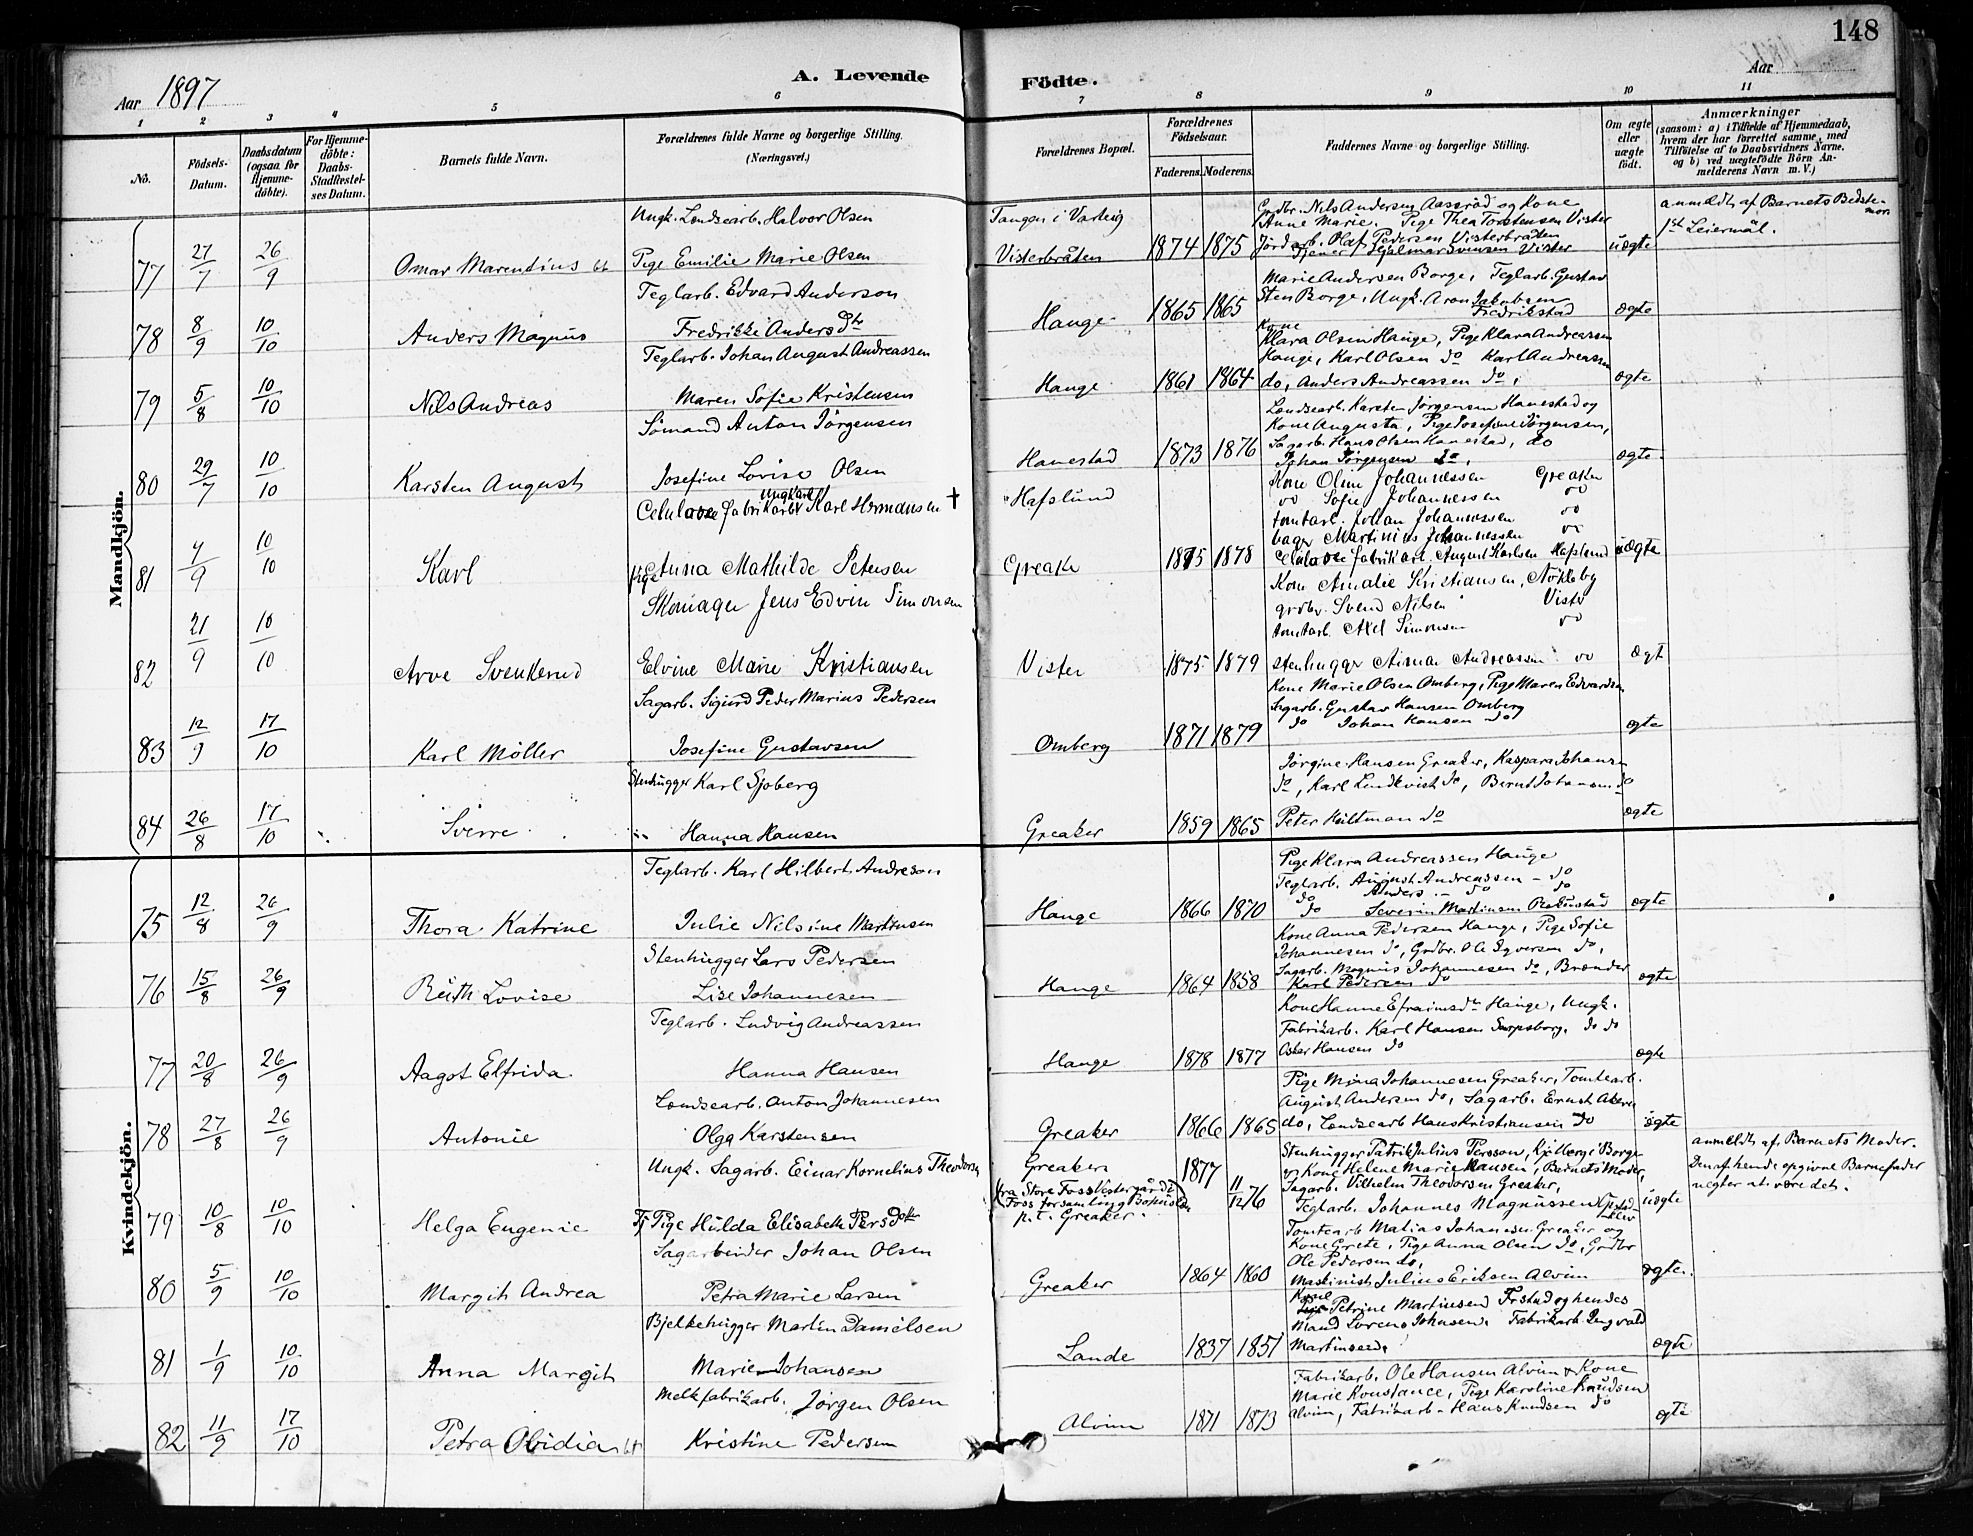 148
Aar 1897
A. Levende
Födte.
Aar
1 2 3 4 5 6 7 8 9 10 11
No.
Födsels-Datum.
Daabsdatum (ogsaa for Hjemme-döbte).
For Hjemme-döbte: Daabs-Stadfæstel-ses Datum.
Barnets fulde Navn.
Forældrenes fulde Navne og borgerlige Stilling. (Næringsvei.)
Forældrenes Bopæl.
Forældrenes Födselsaar.
Faderens. Moderens.
Faddernes Navne og borgerlige Stilling.
Om ægte eller uægte födt.
Anmærkninger (saasom: a) i Tilfælde af Hjemmedaab, hvem der har forrettet samme, med Tilföielse af to Daabsvidners Navne, og b) ved uægtefödte Börn An-melderens Navn m. V.)
Mandkjön.
Ungk. Landsearb. Halvor Olsen
Tangen i Varteig
Grdbr. Nils Andersen Aasröd og Kone
Anne Marie, Pige Thea Torstensen Vister
anmeldt af Barnets Bedstemor
1ste Leiermål.
77 27/7 26/9 Omar Marentius Pige Emilie Marie Olsen Visterbråten 1874 1875 Jordarb. Olaf Pedersen Visterbråten uægte
Tjener Hjalmar Svensen Vister
Teglarb. Edvard Anderson
Marie Andersen Borge, Teglarb. Gustav
Sten Borge, Ungk. Aron Jakobsen
Fredrikstad
78 8/9 10/10 Anders Magnus Fredrikke Andersdtr Hauge 1865 1865 ægte
Teglarb. Johan August Andreassen
Kone
Klara Olsen Hauge, Pige Klara Andreassen
Hauge, Karl Olsen do Karl Andreassen
79 5/8 10/10 Nils Andreas Maren Sofie Kristensen Hauge 1861 1864 do, Anders Andreassen do, ægte
Sömand Anton Jörgensen
Landsearb. Karsten Jörgensen Hanestad og
Kone Augusta, Pige Josefine Jörgensen,
Sagarb. Hans Olsen Hanestad, do
80 29/7 10/10 Karsten August Josefine Lovise Olsen Hanestad 1873 1876 Johan Jörgensen do, ægte
Celulose fabrikarb. Ungkarl Karl Hermansen †
Hafslund
Kone Oline Johannessen Greaker
do Sofie Johannessen do
tomtarb. Johan Johannessen do
bager Martinius Johannessen do
81 7/9 10/10 Karl pige Anna Mathilde Petersen Greaker 1875 1878 Celulose fabrikarb. August Karlsen Hafslund uægte
Skomager Jens Edvin Simonsen
Kone Amalie Kristiansen, Nökleby
grdbr. Svend Nilsen Vister
tomtarb. Axel Simonsen do
82 21/9 10/10 Arve Svenkerud Elvine Marie Kristiansen Vister 1875 1879 stenhugger Andreassen do ægt
Sagarb. Sigurd Peder Marius Pedersen
Kone Marie Olsen Omberg, Pige Maren Edvardsen
Sagarb. Gustav Hansen Omberg
do Johan Hansen do
83 12/9 17/10 Karl Möller Josefine Gustavsen Omberg 1871 1879 ægte
Stenhugger Karl Sjöberg
Jörgine Hansen Greaker, Kaspara Johansen
do, Karl Lundkvist do, Bernt Johansen do
84 26/8 17/10 Sverre Hanna Hansen Greaker 1859 1865 Peter Hultman do ægte
Kvindekjön.
Teglarb. Karl Hilbert Andreson
Pige Klara Andreassen Hauge
Teglarb. August Andreassen - do
do Anders - do do
75 12/8 26/9 Thora Katrine Julie Nilsine Martinsen Hauge 1866 1870 do Severin Martinsen ægte
Stenhugger Lars Pedersen
Kone Anna Pedersen Hauge, Pige Sofie
Johannesen do, Grdbr. Ole Syversen do,
Sagarb. Magnus Johannesen do,
76 15/8 26/9 Ruth Lovise Lise Johannesen Hauge 1864 1858 Karl Pedersen do ægte
Teglarb. Ludvig Andreassen
Kone Hanne Efraimsdtr Hauge, Ungk.
Fabrikarb. Karl Hansen Sarpsborg, do do
Oskar Hansen do
77 20/8 26/9 Aagot Elfrida Hanna Hansen Hauge 1878 1877 ægte
Landsearb. Anton Johannesen
Pige Mina Johannesen Greaker, Tomtearb.
August Andersen do, Sagarb. Ernst
78 27/8 26/9 Antonie Olga Karstensen Greaker 1866 1865 do, Landsearb Hans Kristiansen do ægte
Ungk. Sagarb. Einar Kornelius Theodorsen
Greaker 1877
fra Store Foss Vestergård i
Foss forsamling Bohuslen
p.t. Greaker.
11/12 76
Stenhugger Patrik Julius Persson, Kjölberg i Borge
og Kone Helene Marie Hansen, Barnets Moder,
Sagarb. Vilhelm Theodorsen Greaker,
Teglarb. Johannes Magnussen
anmeldt af Barnets Moder.
Den af hende opgivne Barnefader
negter at være det.
79 10/8 10/10 Helga Eugenie Tj Pige Hulda Elisabeth Persdotter uægte
Sagarbeider Johan Olsen
Tomtearb Matias Johansen Greaker og
Kone Grete, Pige Anna Olsen do, Grdbr
Ole Pedersen do,
80 5/9 10/10 Margith Andrea Petra Marie Larsen Greaker 1864 1860 Maskinist Julius Eriksen Alvim ægte.
Bjelkehugger Martin Danielsen
Kone
Petrine Martinsen og hendes
Mand Lorens Johnsen, Fabrikarb. Ingvald
81 1/9 10/10 Anna Margith Marie Johansen Lande 1837 1851 Martinsen. ægte
Melkfabrikarb. Jörgen Olsen
Fabrikarb. Ole Hansen Alvim & Kone
Marie Konstance, Pige Karoline Knudsen
82 11/9 17/10 Petra Obidia Kristine Pedersen Alvim 1871 1873 Alvim, Fabrikarb - Hans Knudsen do ægte